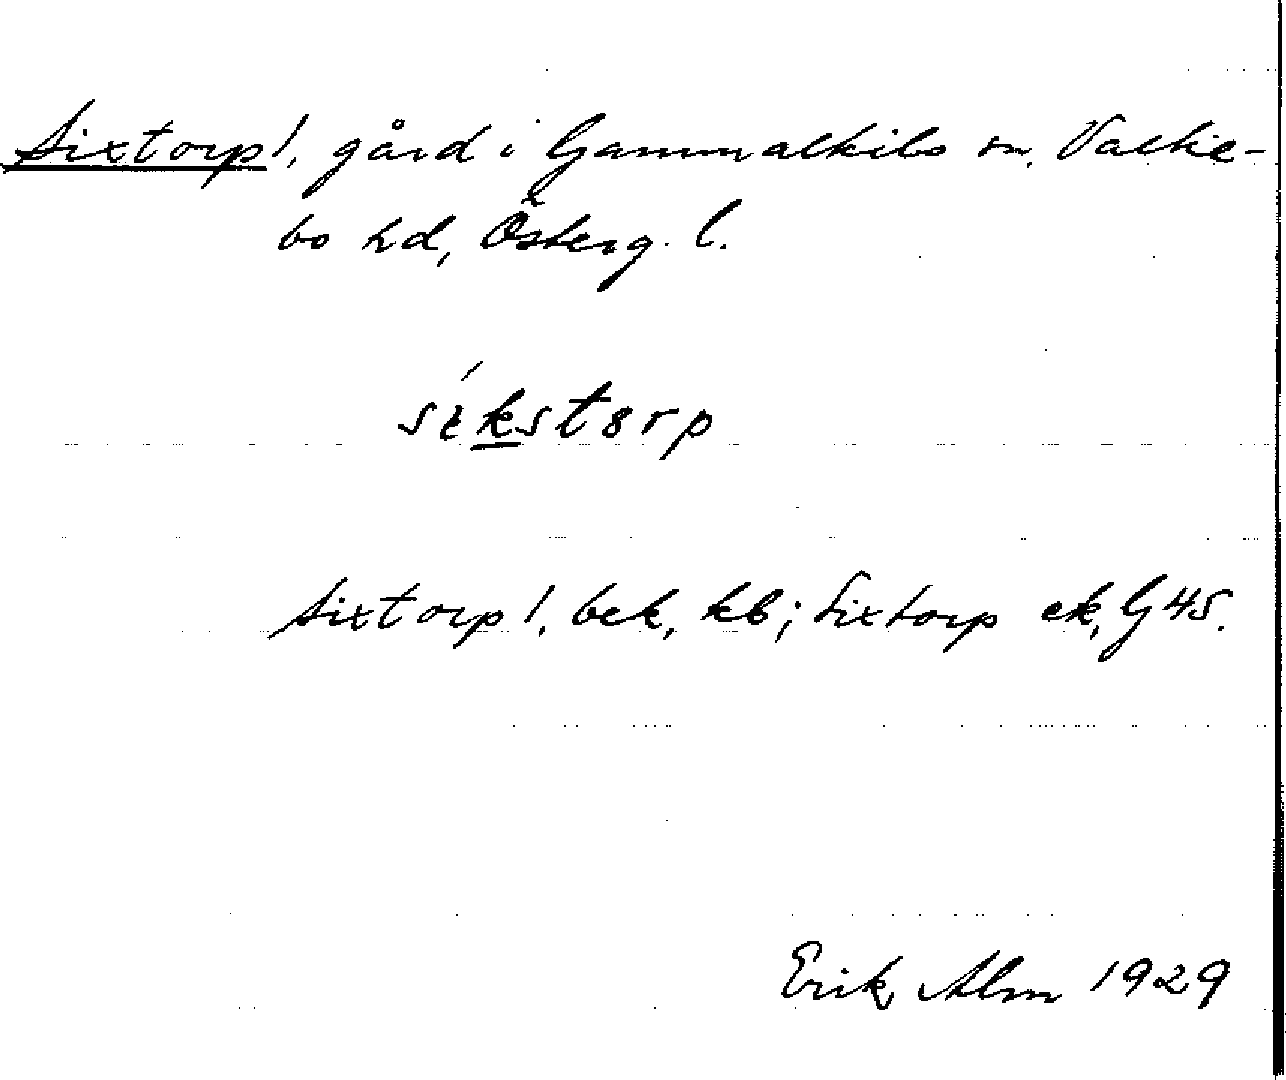 Sixtorp!, gård i Gammalkils sn, Valke-
bo hd, Österg. l.
sìkstɵrp
Sixtorp!, bek, kb; Sixtorp ek, G 45.
Erik Alm 1929